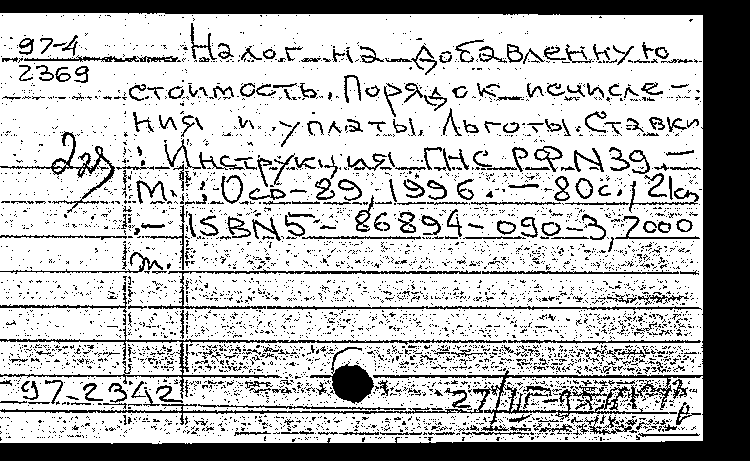 97-4
2369
Налог на добавленную
стоимость. Порядок исчисле-
ния и уплаты. Льготы. Ставки
2 эк
: Инструкция ГНС РФ N39. —
М. : Ось-89, 1996. — 80с.; 21см
.— ISBN 5-86894-090-3, 7000
т.
97-2342
27/III-98